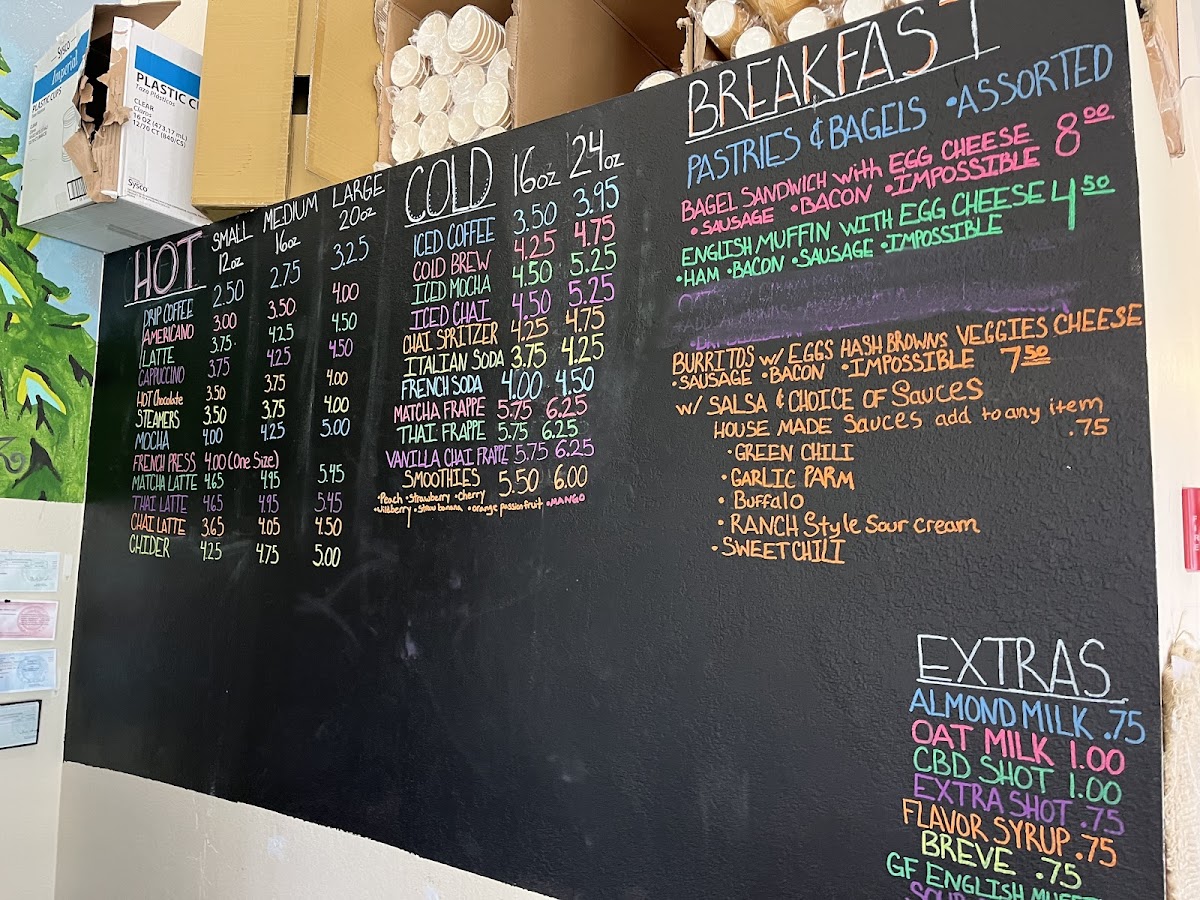 Sysco
Imperial
PLASTIC CUPS
PLASTIC C
Taza Plásticas
CLEAR
Claros
16 OZ (473.17 mL)
12/70 CT (840/CS)
Sysco
HOT SMALL MEDIUM LARGE
12oz 16oz 20oz
DRIP COFFEE 2.50 2.75 3.25
AMERICANO 3.00 3.50 4.00
LATTE 3.75 4.25 4.50
CAPPUCCINO 3.75 4.25 4.50
HOT Chocolate 3.50 3.75 4.00
STEAMERS 3.50 3.75 4.00
MOCHA 4.00 4.25 5.00
FRENCH PRESS 4.00 (One Size)
MATCHA LATTE 4.65 4.95 5.45
THAI LATTE 4.65 4.95 5.45
CHAI LATTE 3.65 4.05 4.50
CHIDER 4.25 4.75 5.00
COLD 16oz 24oz
ICED COFFEE 3.50 3.95
COLD BREW 4.25 4.75
ICED MOCHA 4.50 5.25
ICED CHAI 4.50 5.25
CHAI SPRITZER 4.25 4.75
ITALIAN SODA 3.75 4.25
FRENCH SODA 4.00 4.50
MATCHA FRAPPE 5.75 6.25
THAI FRAPPE 5.75 6.25
VANILLA CHAI FRAPPE 5.75 6.25
SMOOTHIES 5.50 6.00
•Peach •Strawberry •Cherry
•Wildberry •Straw banana •orange passionfruit •MANGO
BREAKFAST
PASTRIES & BAGELS •ASSORTED
BAGEL SANDWICH with EGG CHEESE 8.00
•SAUSAGE •BACON •IMPOSSIBLE
ENGLISH MUFFIN WITH EGG CHEESE 4.50
•HAM •BACON •SAUSAGE •IMPOSSIBLE
BURRITOS w/ EGGS HASH BROWNS VEGGIES CHEESE
•SAUSAGE •BACON •IMPOSSIBLE 7.50
w/ SALSA & CHOICE OF SAUCES
HOUSE MADE Sauces add to any item
.75
•GREEN CHILI
•GARLIC PARM
•Buffalo
•RANCH Style Sour cream
•SWEET CHILI
EXTRAS
ALMOND MILK .75
OAT MILK 1.00
CBD SHOT 1.00
EXTRA SHOT .75
FLAVOR SYRUP .75
BREVE .75
GF ENGLISH